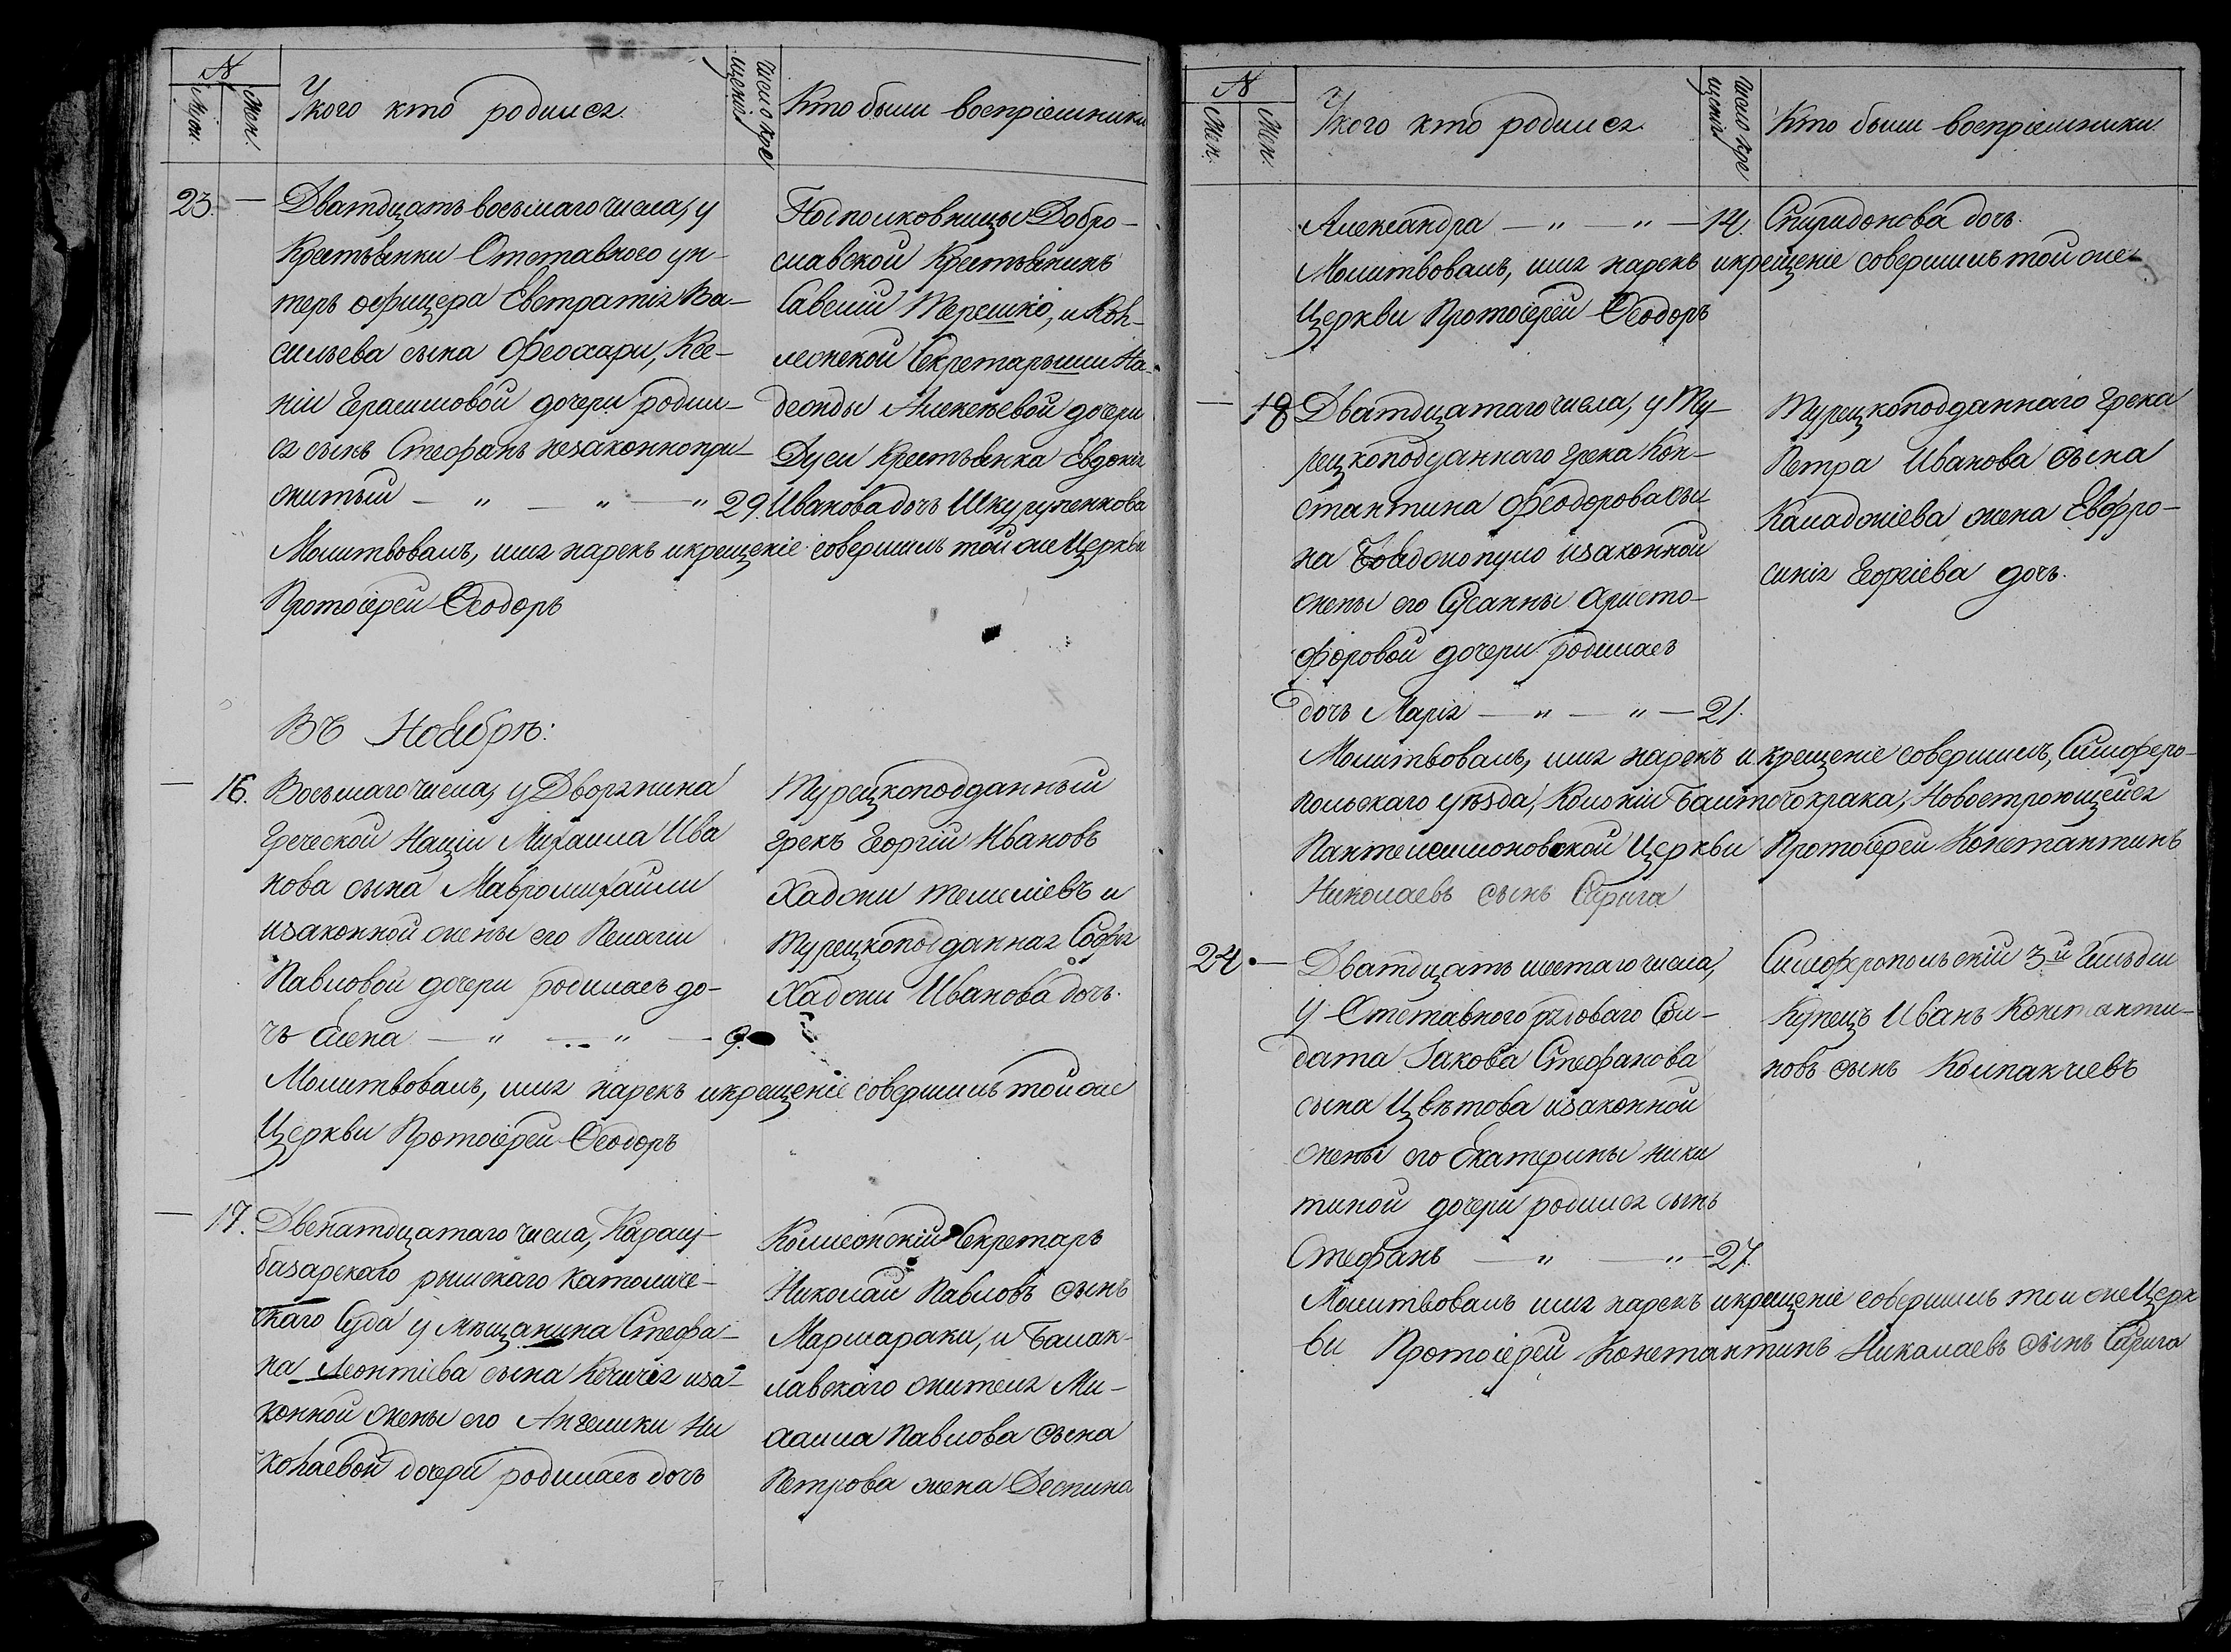 №
Муж.
Жен.
У кого кто родился.
Число кре
щенія
Кто были воспріемники
23. —
Дватдцать восьмаго числа, у
Крестьянки Отставного ун-
теръ офицера Евстратія Ва-
сильева сына Феохари, Ксе-
ніи Герасимовой дочери родил-
ся сынъ Стефанъ незаконнопри-
житый — " — " — " 29.
Подполковницы Добро-
славской Крестьянинъ
Савелій Терешко, и Кол-
лежской Секретарьши На-
дежды Алексѣевой дочери
Дуси Крестьянка Евдокія
Иванова дочь Шкурученкова
Молитвовалъ, имя нарекъ и крещеніе совершилъ той же Церкви
Протоіерей Ѳеодоръ
Въ Ноябрѣ:
— 16.
Восьмаго числа, у Дворянина
Греческой Націи Михаила Ива
нова сына Мавромихайли
и законной жены его Пелагіи
Павловой дочери родилась до-
чь Елена — " — " — 9.
Турецкоподданный
Грекъ Георгій Ивановъ
Хаджи и
Турецкоподданная Софія
Хаджи Иванова дочь.
Молитвовалъ, имя нарекъ и крещеніе совершилъ той же
Церкви Протоіерей Ѳеодоръ
— 17.
Двенатдцатаго числа, Карасу-
базарскаго римскаго Католиче-
скаго Суда у мѣщанина Стефа-
на Леонтіева сына и за-
конной жены его Ангелики Ни
колаевой дочери родилась дочь
Коллежскій Секретарь
Николай Павловъ сынъ
Мармараки, и Балак-
лавскаго жителя Ми-
хаила Павлова сына
Петрова жена Деспина
№
Жен.
У кого кто родился
Число кре
щенія
Кто были воспріемники.
Александра — " — " — 14.
Спиридонова дочь.
Молитвовалъ, имя нарекъ и крещеніе совершилъ той же
Церкви Протоіерей Ѳеодоръ
— 18
Дватдцатаго числа, у Ту-
рецкоподданнаго Грека Кон-
стантина Феодорова сы-
на и законной
жены его Сусанны Аристо-
форовой дочери родилась
дочь Марія — " — " — 21.
Турецкоподданнаго Грека
Петра Иванова сына
Каладжіева жена Евфро-
синія Георгіева дочь.
Молитвовалъ, имя нарекъ и крещеніе совершилъ, Симферо-
польскаго уѣзда, Колоніи Новостроющейся
Пантелеимоновской Церкви Протоіерей Константинъ
Николаевъ сынъ Сарига
24. —
Дватдцать шестаго числа,
у Отставного рядоваго Сол-
дата Іакова Стефанова
сына Цвѣтова и законной
жены его Екатерины Ники
тиной дочери родился сынъ
Стефанъ — " — " — 27.
Симферопольскій 3й Гильдіи
Купецъ Иванъ Константи-
новъ сынъ Колпакчіевъ
Молитвовалъ имя нарекъ и крещеніе совершилъ той же Церк
ви Протоіерей Константинъ Николаевъ сынъ Сарига